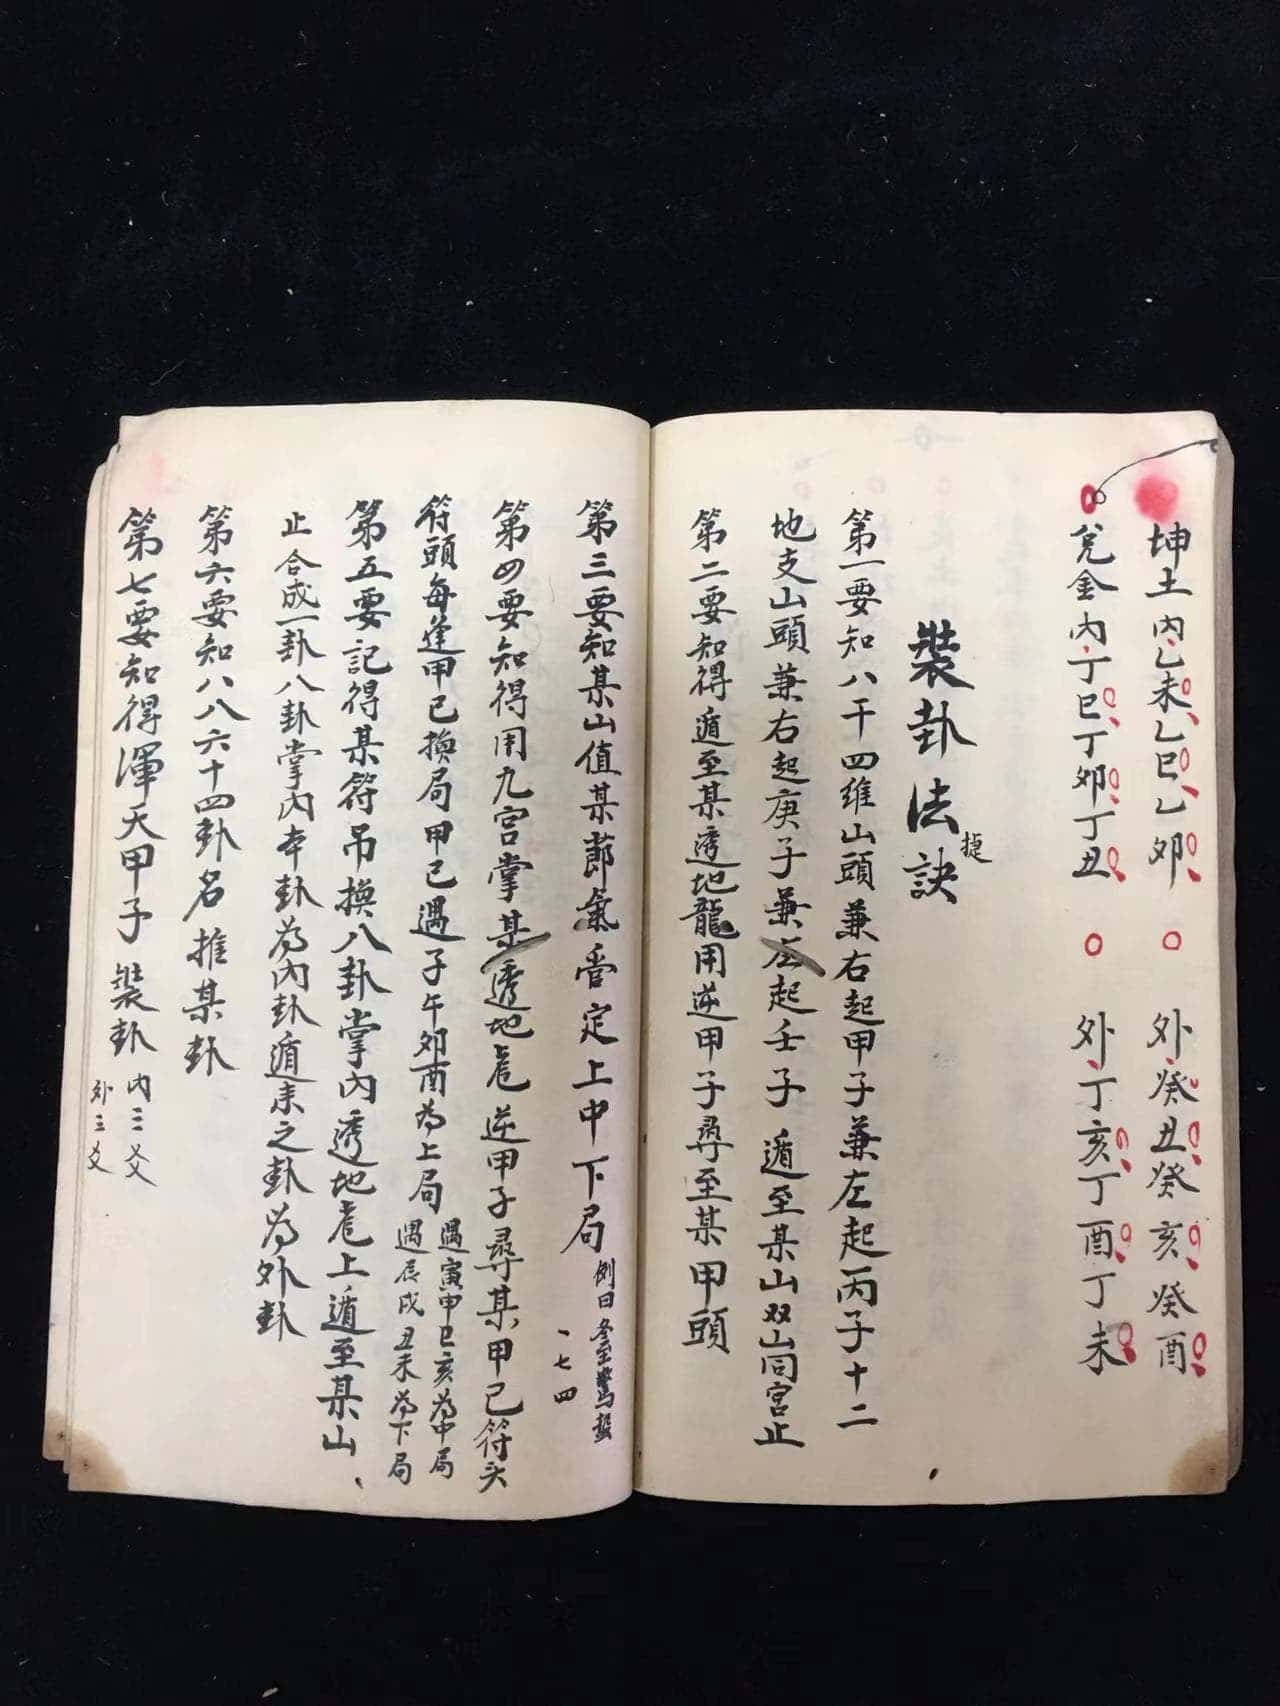 坤土内乙未乙巳乙夘 外癸丑癸亥癸酉
兌金内丁巳丁夘丁丑 外丁亥丁酉丁未
裝卦法訣
捷
第一要知八干四维山頭兼右起甲子兼左起丙子十二
地支山頭兼右起庚子兼左起壬子遁至某山双山同宫止
第二要知得遁至某透地龍用逆甲子尋至某甲頭
第三要知某山值某節氣管定上中下局
例曰冬至驚蟄
一七四
第四要知得用九宫掌某透地竜逆甲子尋某甲已符头
符頭每逢甲已換局甲已遇子午夘酉為上局
遇寅申巳亥為中局
遇辰戍丑未為下局
第五要記得某符吊換八卦掌內透地竜上遁至某山
止合成一卦八卦掌内本卦為内卦遁来之卦為外卦
第六要知八八六十四卦名推某卦
第七要知得渾天甲子裝卦
内三爻
外三爻